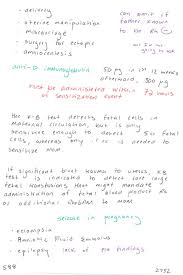 • delivery
• uterine manipulation
miscarriage
• surgery for ectopic
amniocentesis
can omit if
father known
to be Rh ⊖
Anti-D immunoglobulin 50 µg in 1st 12 weeks
afterward, 300 µg
must be administered within 72 hours
of sensitization event
The K-B test detects fetal cells in
maternal circulation, but is only
sensitive enough to detect 5cc fetal
cells, whereas only .1 cc is needed to
sensitize mom
If significant blunt trauma to uterus, KB
test is indicated to detect large
fetal transfusion that might mandate
administration of
or additional to mom
seizure in pregnancy
• eclampsia
• Amniotic Fluid Embolus
• epilepsy lack of pre findings
588
2752